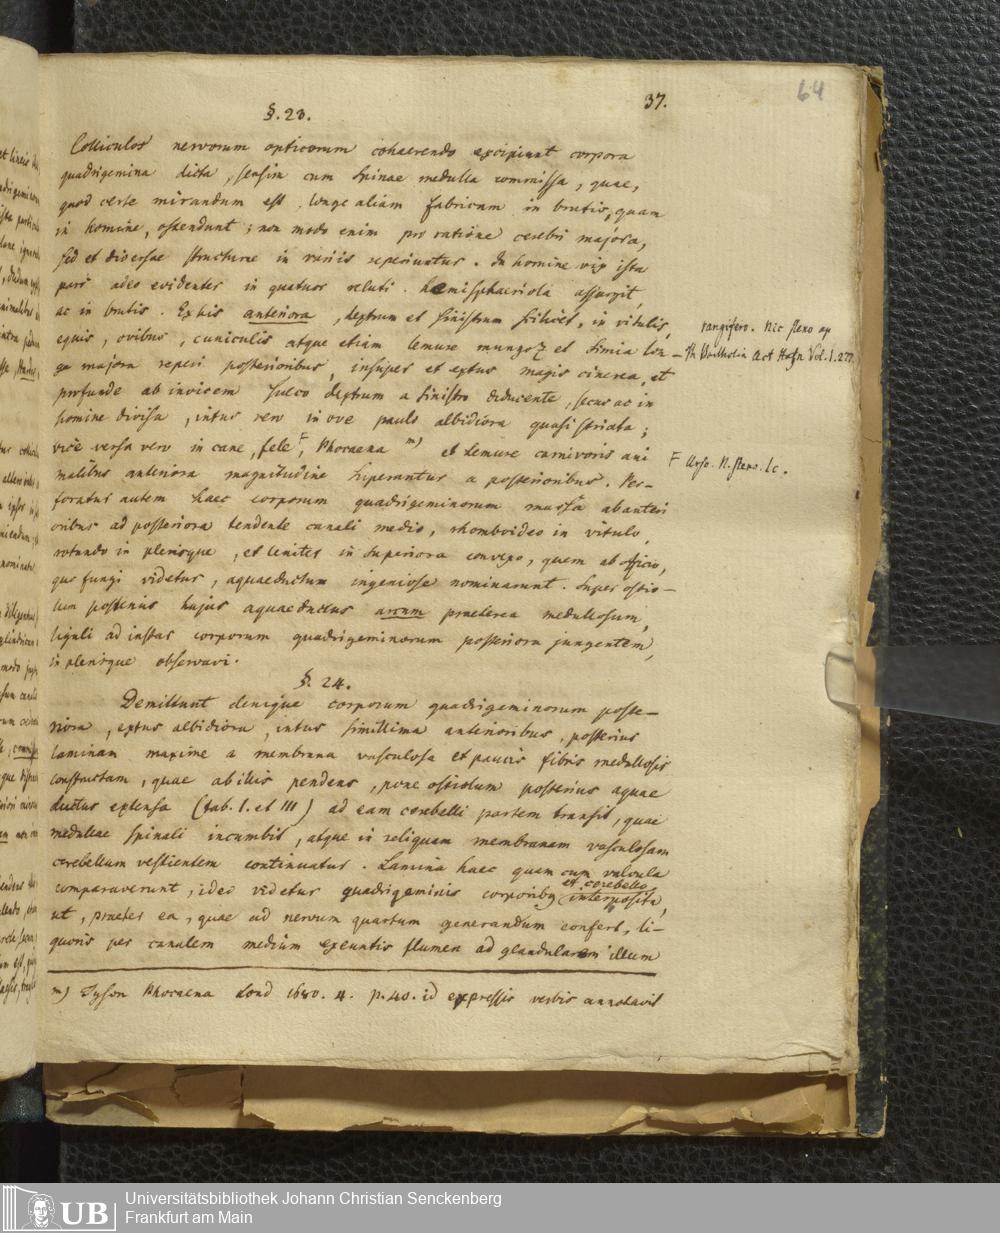 37.
64
§. 23.
Colliculos nervorum opticorum cohaerendo excipiunt corpora
quadrigemina dicta, sensim cum spinae medulla commissa, quae,
quod certe mirandum est, longe aliam fabricam in brutis, quam
in homine, ostendunt; non modo enim pro ratione cerebri majora,
sed et diversae structurae in variis reperiuntur. In homine vix ista
pari adeo evidenter in quatuor veluti hemisphaeriola assurgit,
ac in brutis. Ex his anteriora, dextrum et sinistrum scilicet, in vitulis,
equis, ovibus, cuniculis atque etiam lemure mungoz et simia lon-
ga majora reperi posterioribus, insuper et extus magis cinerea, et
profunde ab invicem sulco dextrum a sinistro diducente, secus ac in
homine divisa, intus vero in ove paulo albidiora quasi striata;
vice versa vero in cane, fele F, Phocaena m) et lemure carnivoris ani
malibus anteriora magnitudine superantur a posterioribus. Per-
foratur autem haec corporum quadrigeminorum massa ab anteri
oribus ad posteriora tendente canali medio, rhomboideo in vitulo,
rotundo in plerisque, et leniter in superiora convexo, quem ab officio,
quo fungi videtur, aquaeductum ingeniose nominarunt. Super ostio-
lum posterius hujus aquaeductus arcum praeterea medullosum,
liguli ad instar corporum quadrigeminorum posteriora jungentem,
in plerisque observavi.
rangifero. Nic steno ap
Th Bartholin Act Hafn Vol. I. 277.
F Urso. N. steno. l.c.
§. 24.
Demittunt denique corporum quadrigeminorum poste-
riora, extus albidiora, intus simillima anterioribus, posterius
laminam maxime a membrana vasculosa et paucis fibris medullosis
constructam, quae ab illis pendens, pone ostiolum posterius aquae
ductus extensa (tab. I. et III) ad eam cerebelli partem transit, quae
medullae spinali incumbit, atque in reliquam membranam vasculosam
cerebellum vestientem continuatur. Lamina haec quam cum valvula
comparaverunt, ideo videtur quadrigeminis corporibq et cerebello interposita,
ut, praeter ea, quae ad nervum quartum generandum confert, li-
quoris per canalem medium exeuntis flumen ad glandularem illum
m) Tyson Phocaena Lond 1680. 4. p. 40. id expressis verbis annotavit
Universitätsbibliothek Johann Christian Senckenberg
Frankfurt am Main
UB